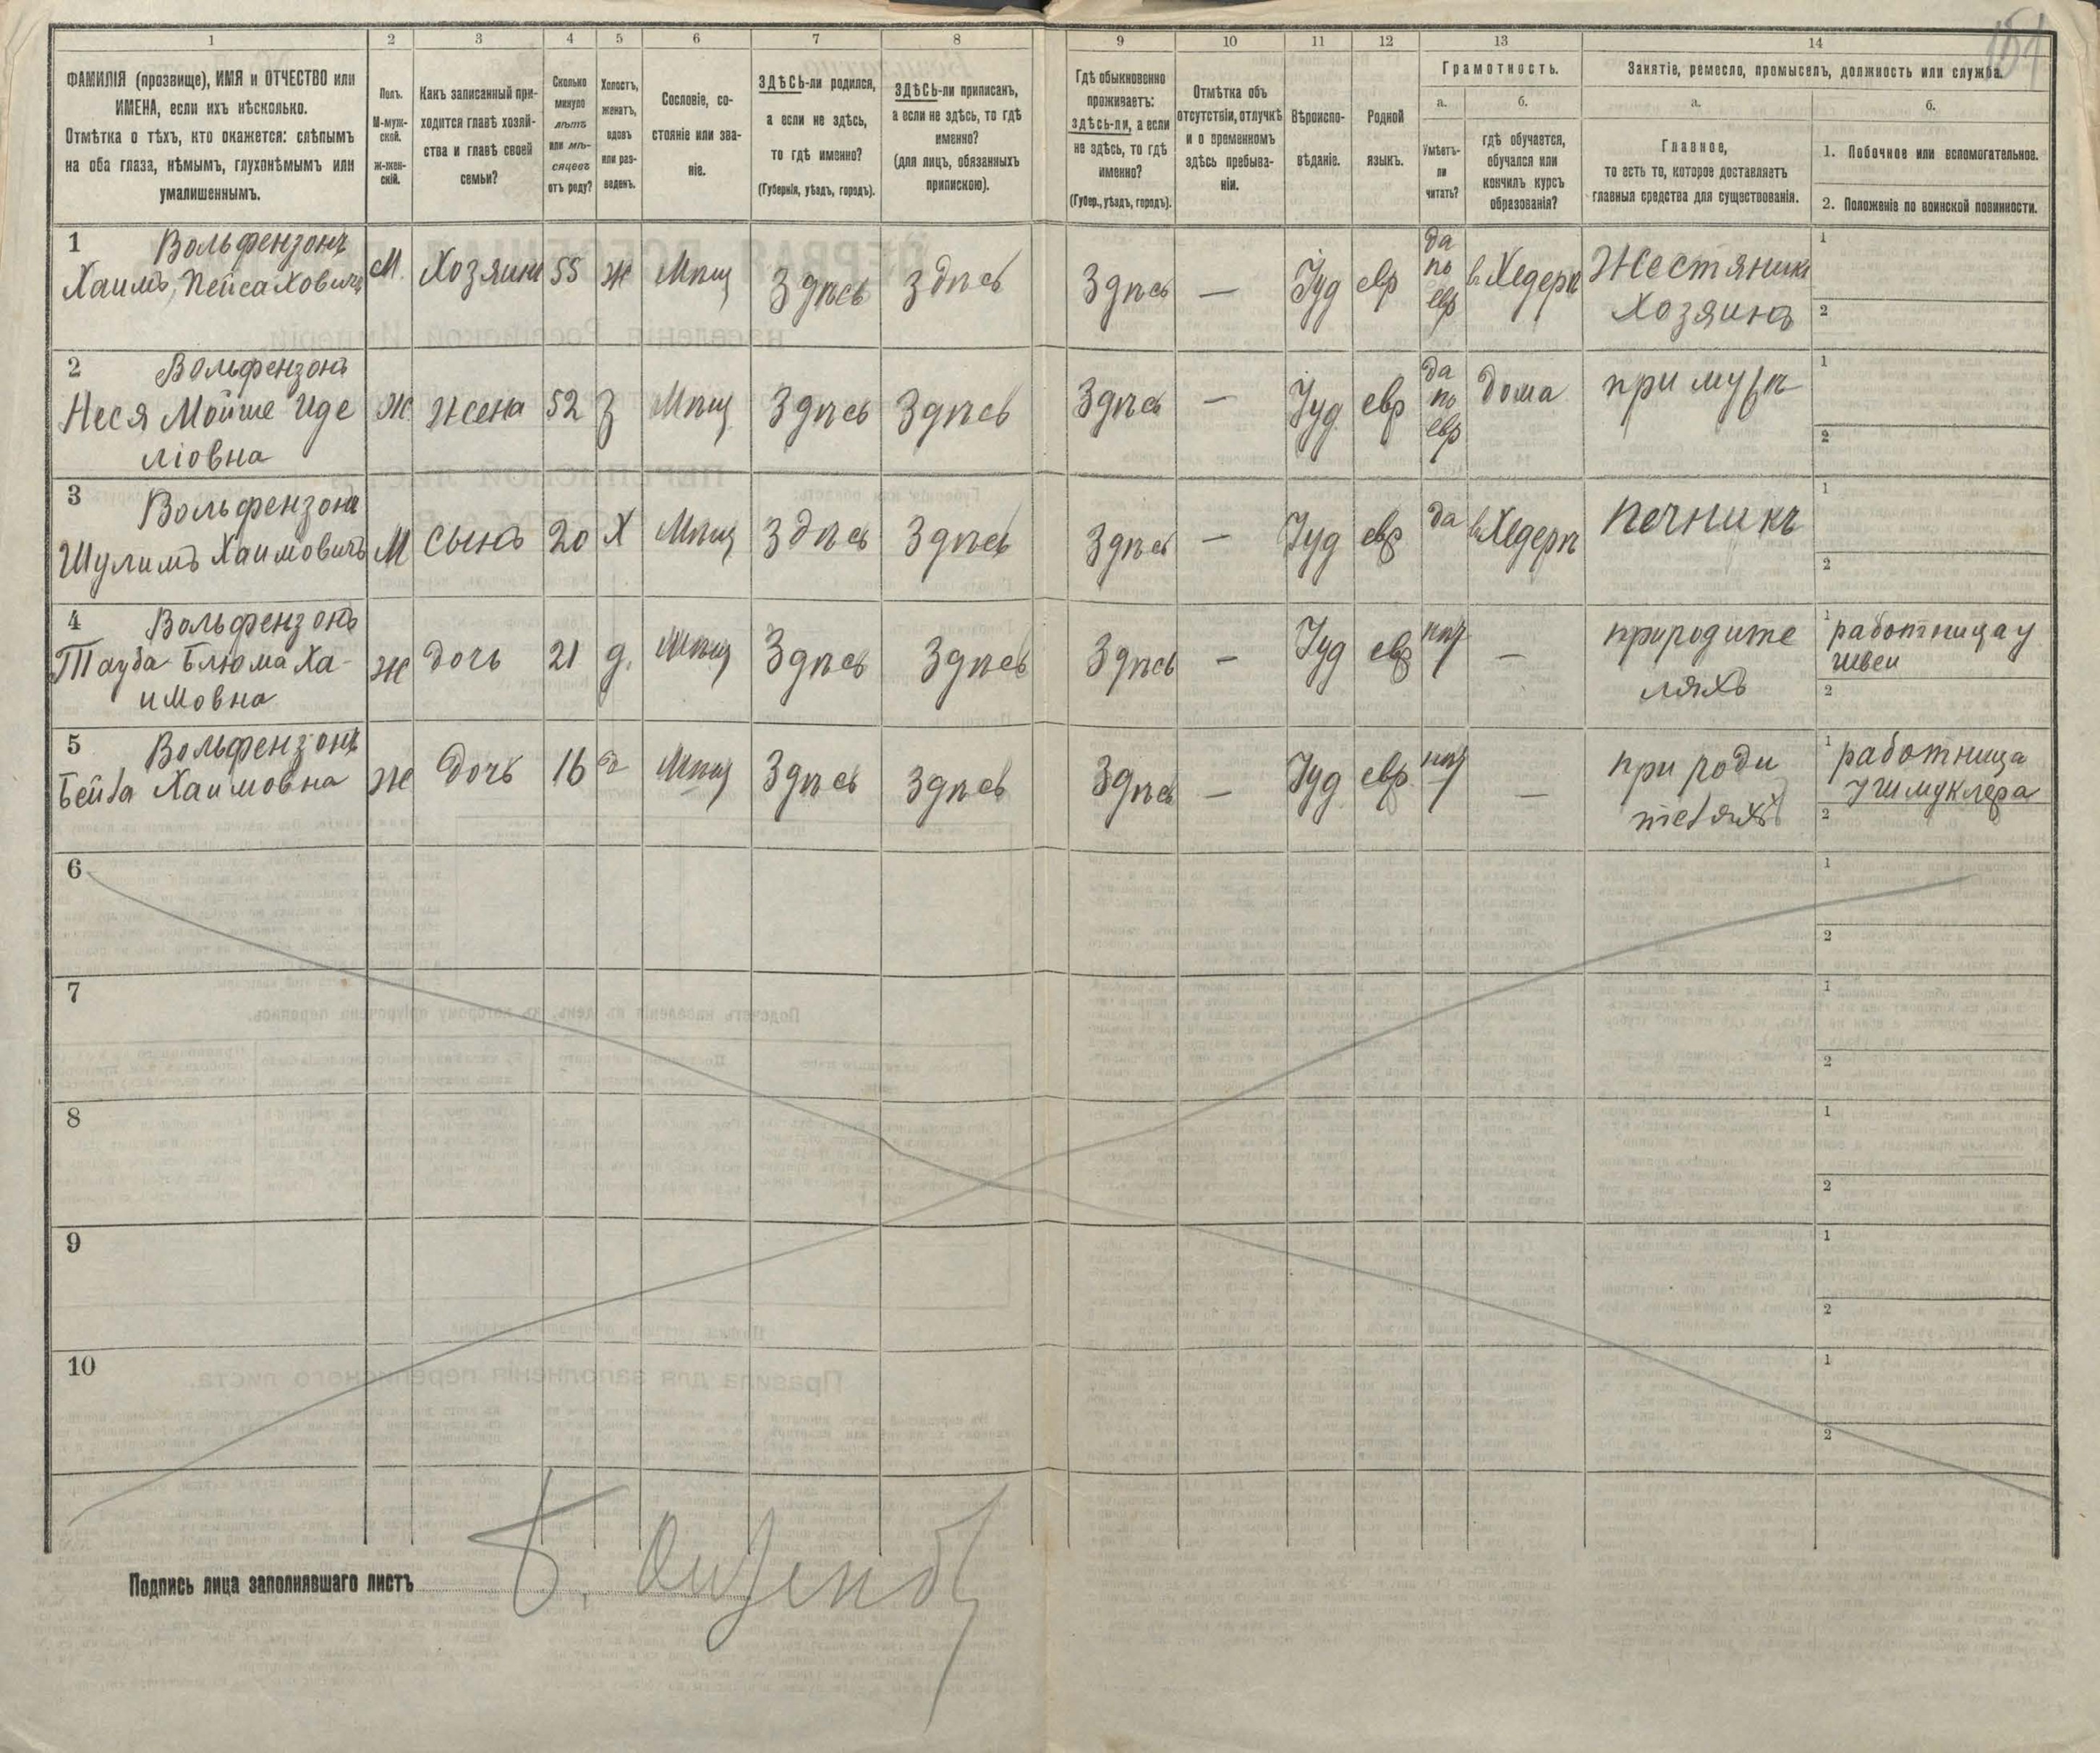 151
1 2 3 4 5 6 7 8 9 10 11 12 13 14
ФАМИЛІЯ (прозвище), ИМЯ и ОТЧЕСТВО или
ИМЕНА, если ихъ нѣсколько.
Отмѣтка о тѣхъ, кто окажется: слѣпымъ
на оба глаза, нѣмымъ, глухонѣмымъ или
умалишеннымъ.
Полъ.
М-муж-
ской.
ж-жен-
скій.
Какъ записанный при-
ходится главѣ хозяй-
ства и главѣ своей
семьи?
Сколько
минуло
лѣтъ
или мѣ-
сяцевъ
отъ роду?
Холостъ,
женатъ,
вдовъ
или раз-
веденъ.
Сословіе, со-
стояніе или зва-
ніе.
ЗДѢСЬ-ли родился,
а если не здѣсь,
то гдѣ именно?
(Губернія, уѣздъ, городъ).
ЗДѢСЬ-ли приписанъ,
а если не здѣсь, то гдѣ
именно?
(для лицъ, обязанныхъ
припискою).
Гдѣ обыкновенно
проживаетъ:
здѣсь-ли, а если
не здѣсь, то гдѣ
именно?
(Губер., уѣздъ, городъ).
Отмѣтка объ
отсутствіи, отлучкѣ
и о временномъ
здѣсь пребыва-
ніи.
Вѣроиспо-
вѣданіе.
Родной
языкъ.
Грамотность.
а.
Умѣетъ-
ли
читать?
б.
гдѣ обучается,
обучался или
кончилъ курсъ
образованія?
Занятіе, ремесло, промыселъ, должность или служба.
а.
Главное,
то есть то, которое доставляетъ
главныя средства для существованія.
б.
1. Побочное или вспомогательное.
2. Положеніе по воинской повинности.
1 Вольфензонъ
Хаимъ Пейсаховичъ
М.
Хозяинъ
55
ж
Мѣщ
Здѣсь
Здѣсь
Здѣсь
—
Іуд
евр
да
по
евр
в Хедерѣ
Жестяникъ
Хозяинъ
1
2
2 Вольфензонъ
Неся Мойше Иде
ліовна
Ж
Жена
52
З
Мѣщ
Здѣсь
Здѣсь
Здѣсь
—
Іуд
евр
да
по
евр
дома
при мужѣ
1
2
3 Вольфензонъ
Шулимъ Хаимовичъ
М
сынъ
20
Х
Мѣщ
Здѣсь
Здѣсь
Здѣсь
—
Іуд
евр
да
в Хедерѣ
печникъ
1
2
4 Вольфензонъ
Тауба Блюма Ха-
имовна
Ж
дочь
21
д.
Мѣщ
Здѣсь
Здѣсь
Здѣсь
—
Іуд
евр
нѣт
—
при родите
ляхъ
1 работница у
швеи
2
5 Вольфензонъ
Бейла Хаимовна
Ж
дочь
16
д
Мѣщ
Здѣсь
Здѣсь
Здѣсь
—
Іуд
евр
нѣт
—
при роди
теляхъ
1 работница
у шмуклера
2
6
1
2
7
1
2
8
1
2
9
1
2
10
1
2
Подпись лица заполнявшаго листъ